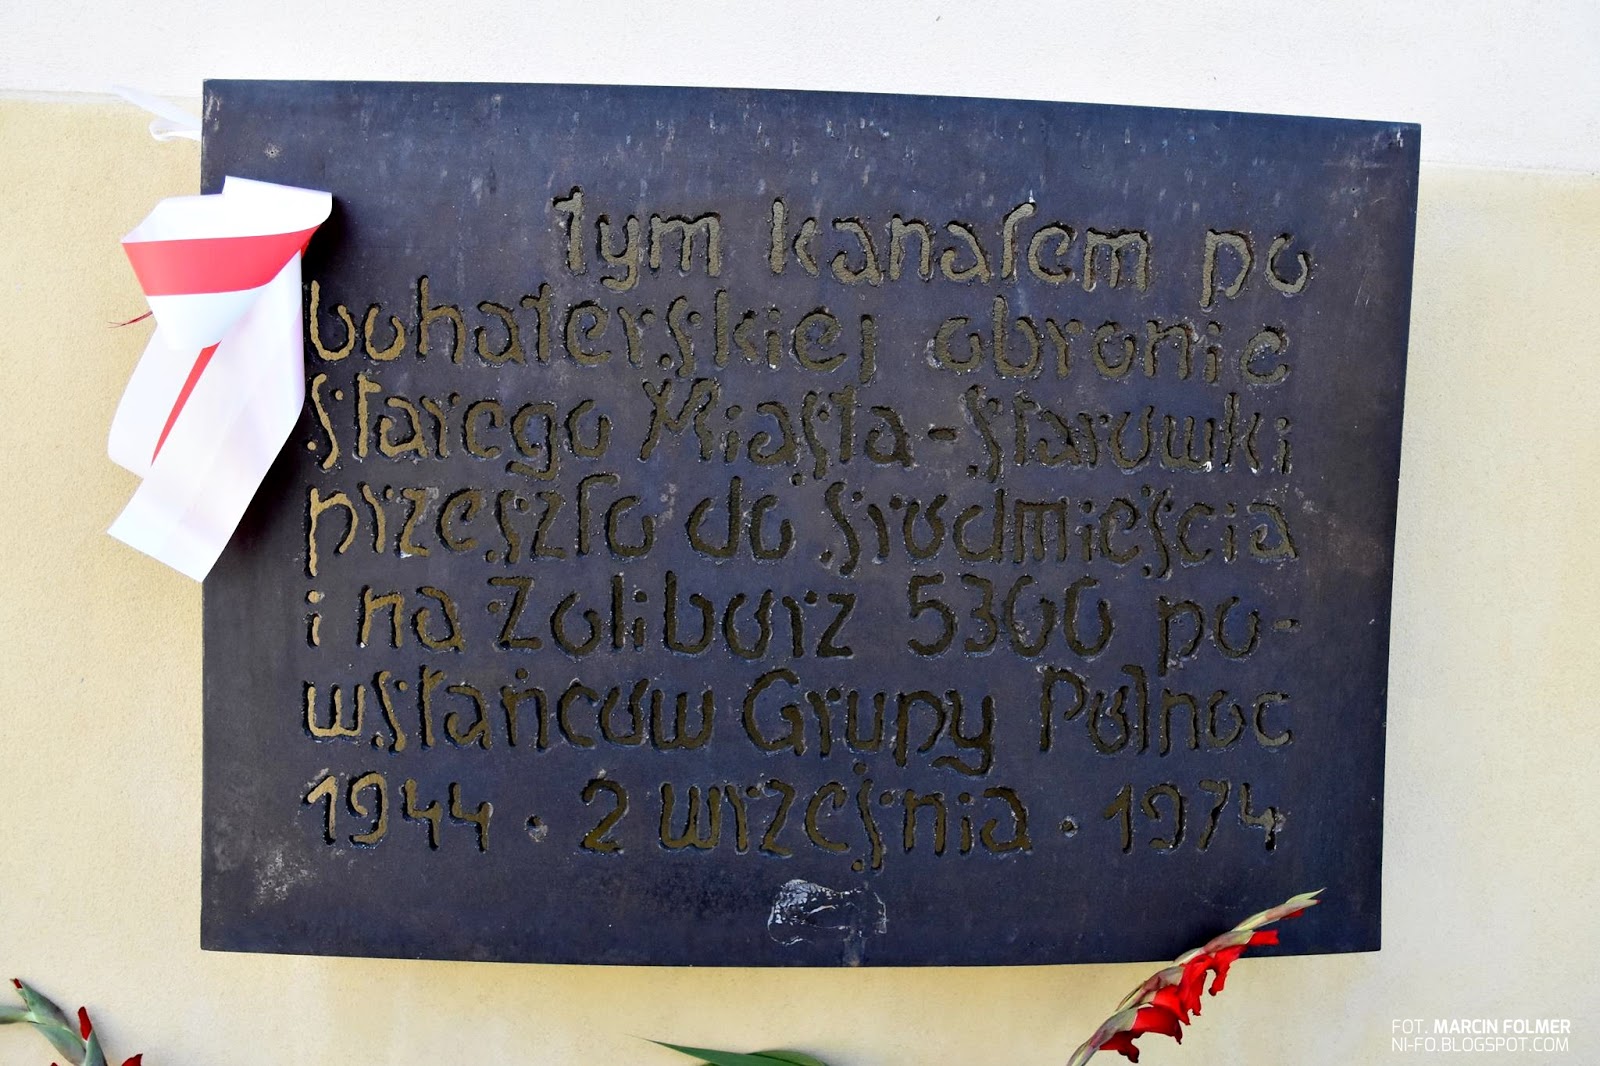 Tym kanałem po
bohaterskiej obronie
Starego Miasta-Starówki
przeszło do Śródmieścia
i na Żoliborz 5300 po-
wstańców Grupy Północ
1944 · 2 września · 1974
FOT. MARCIN FOLMER
NI-FO.BLOGSPOT.COM